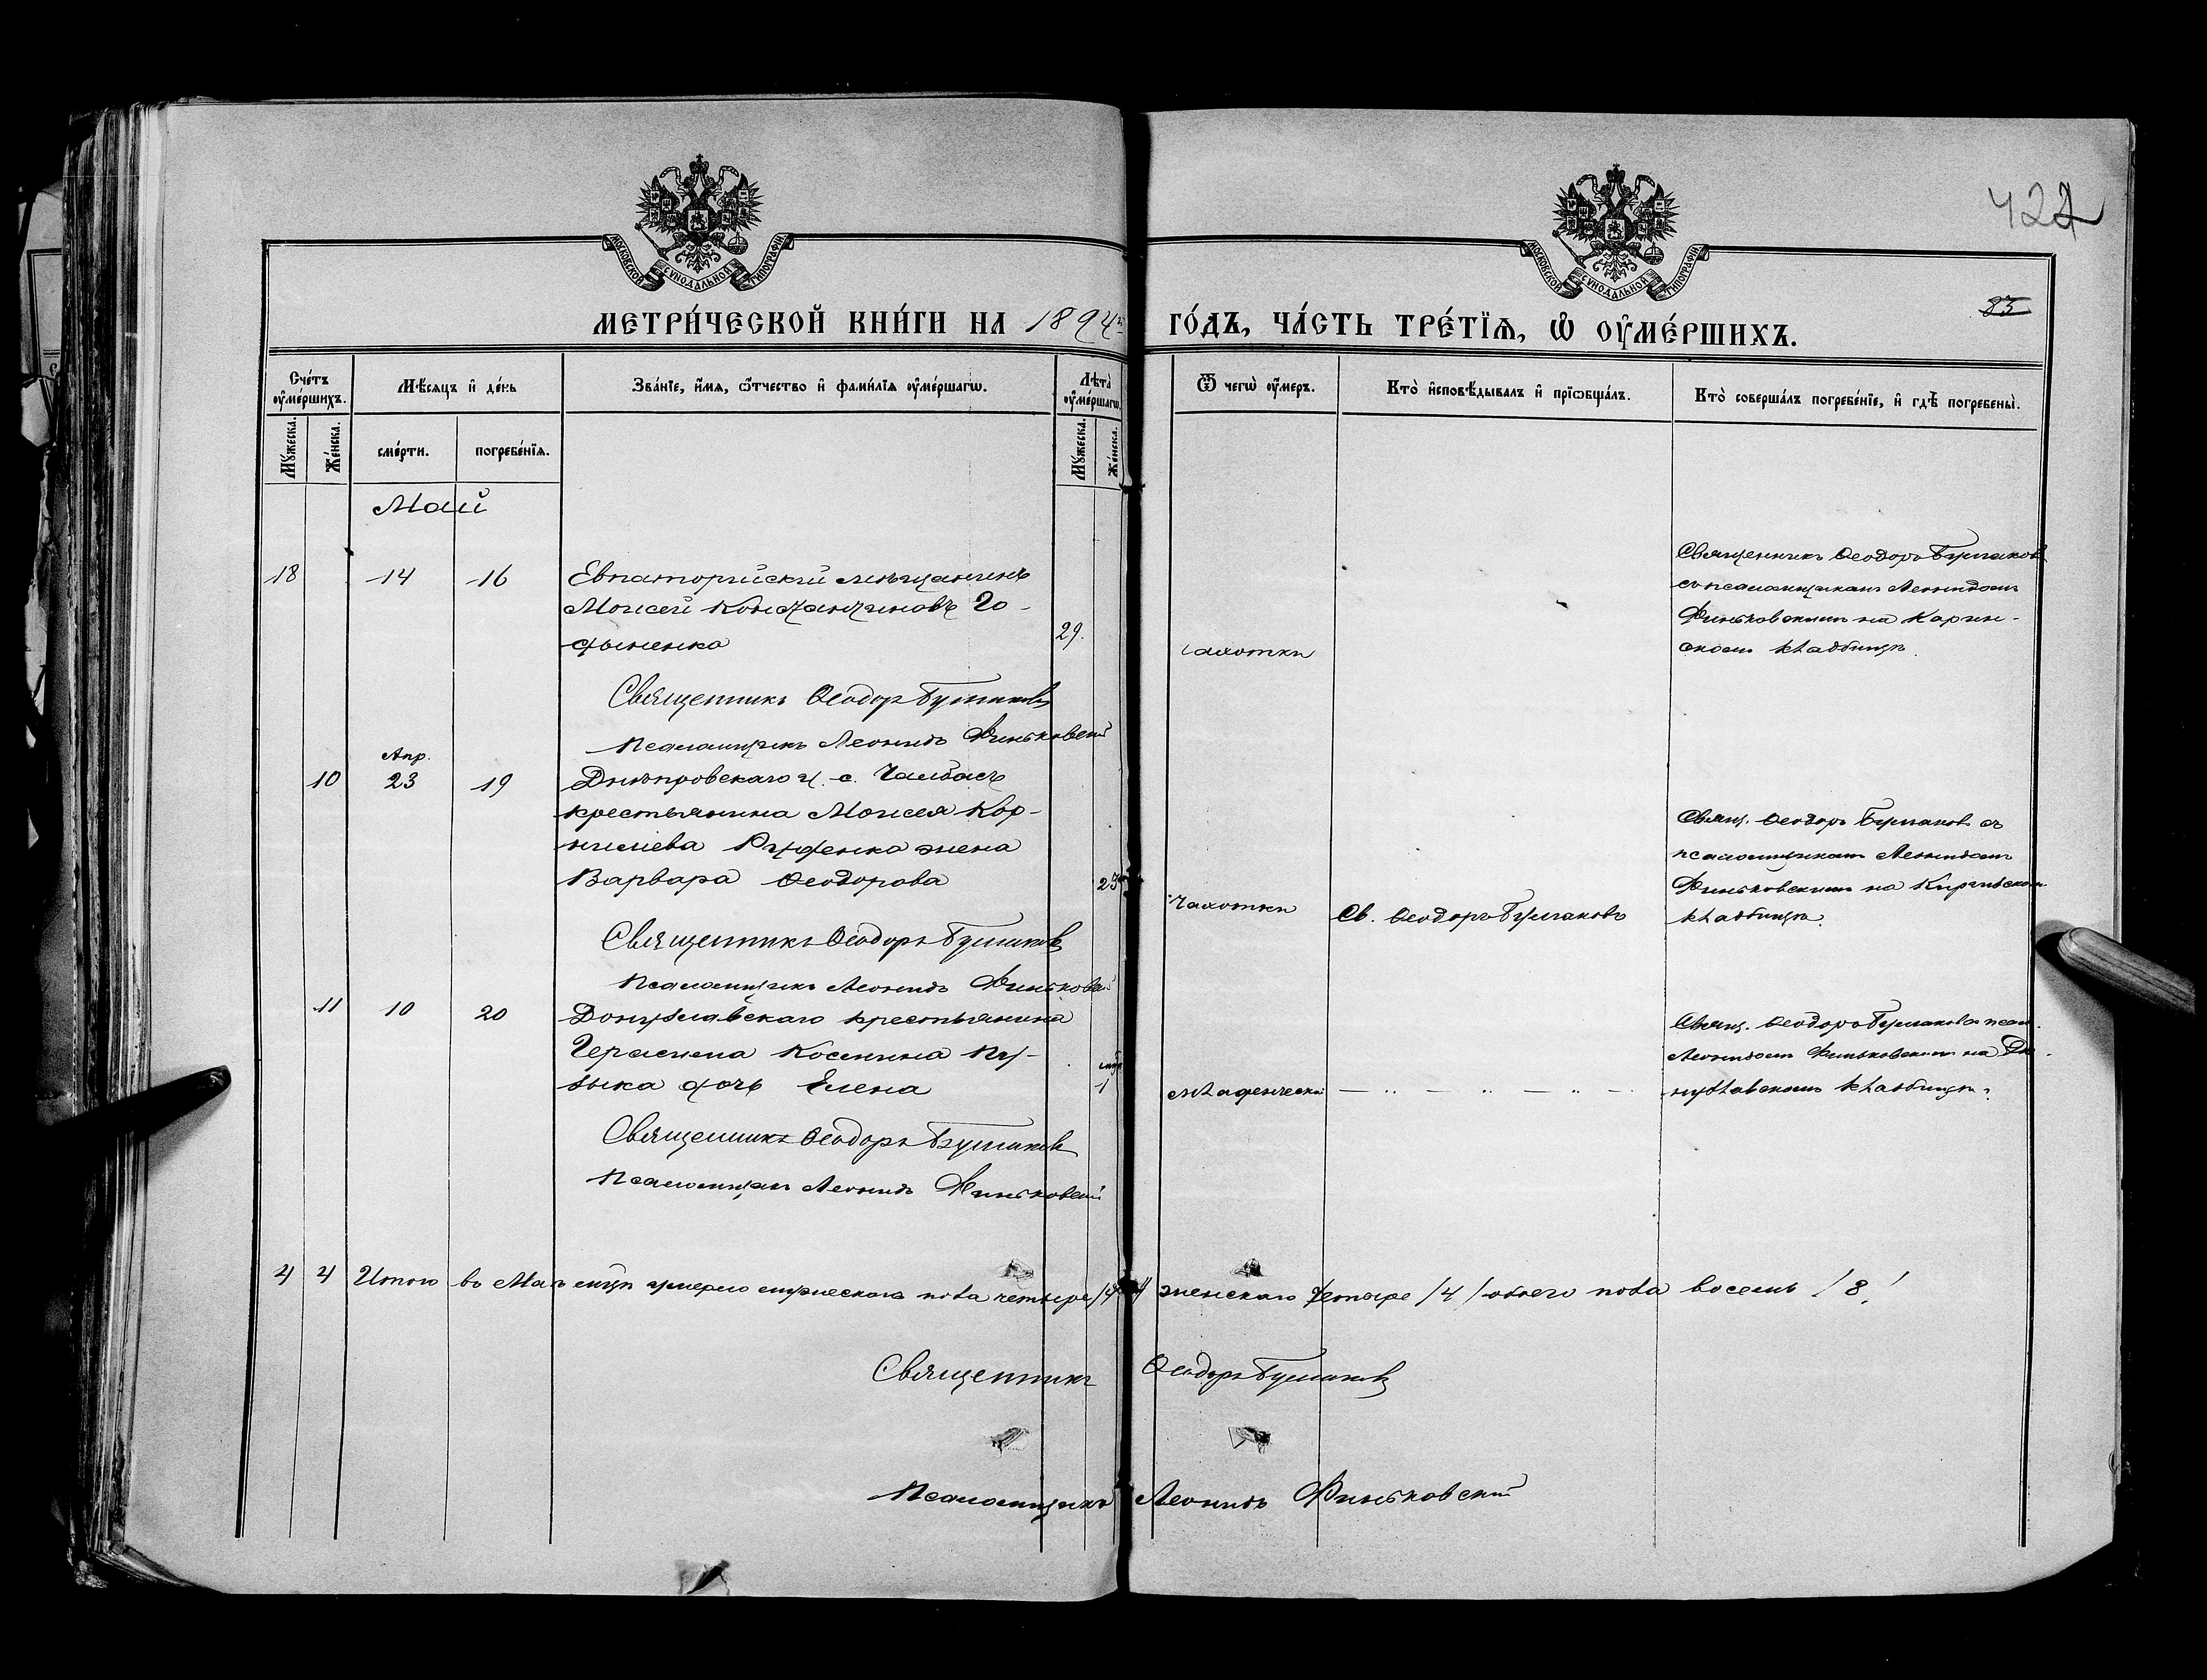 422
83
МОСКОВСКОЙ СѴНОДАЛЬНОЙ ТИПОГРАФІИ
МОСКОВСКОЙ СѴНОДАЛЬНОЙ ТИПОГРАФІИ
МЕТРИ́ЧЕСКОЙ КНИ́ГИ НА 1894 й ГО́ДЪ, ЧА́СТЬ ТРЕ́ТЇѦ, Ѡ҆ ОУ҆МЕ́РШИХЪ.
Сче́тъ оу҆ме́ршихъ.
Мꙋ́жеска.
Же́нска.
Мѣ́сѧцъ и҆ де́нь
сме́рти.
погребе́нїѧ.
Зва́нїе, и҆́мѧ, ѻ҆́тчество и҆ фами́лїѧ оу҆ме́ршагѡ.
Лѣ̀та оу҆ме́ршагѡ.
Мꙋ́жеска.
Же́нска.
Ѿ чегѡ̀ оу҆́меръ.
Кто̀ и҆сповѣ́дывалъ и҆ прїѡбща́лъ.
Кто̀ соверша́лъ погребе́нїе, и҆ гдѣ̀ погребены̀.
Май
18 14 16 Евпаторійскій мѣщанинъ
Моисей Константиновъ Го-
дыненко 29.
чахотки
Священникъ Ѳеодоръ Булгаковъ
съ псаломщикомъ Леонидомъ
Финьковскимъ на
скомъ кладбищѣ.
Священникъ Ѳеодоръ Булгаковъ
Псаломщикъ Леонидъ Финьковскій
Апр.
10 23 19 Днѣпровскаго у. с. Чалбасъ
крестьянина Моисея Кор-
нилиева Руденка жена
Варвара Ѳеодорова 23
Чахотки
Св. Ѳеодоръ Булгаковъ
Свящ. Ѳеодоръ Булгаковъ съ
псаломщикомъ Леонидомъ
Финьковскимъ на
кладбищѣ.
Священникъ Ѳеодоръ Булгаковъ
Псаломщикъ Леонидъ Финьковскій
11 10 20 Донузлавскаго крестьянина
Герасима Косьмина Пу-
зыка дочь Елена 1
младенческой
Свящ. Ѳеодоръ Булгаковъ псал.
Леонидомъ Финьковскимъ на До-
нузлавскомъ кладбищѣ.
Священникъ Ѳеодоръ Булгаковъ
Псаломщикъ Леонидъ Финьковскій
4 4 Итого въ Маѣ м-цѣ умерло мужескаго пола четыре /4/ женскаго четыре /4/ обоего пола восемь /8/
Священникъ Ѳеодоръ Булгаковъ
Псаломщикъ Леонидъ Финьковскій